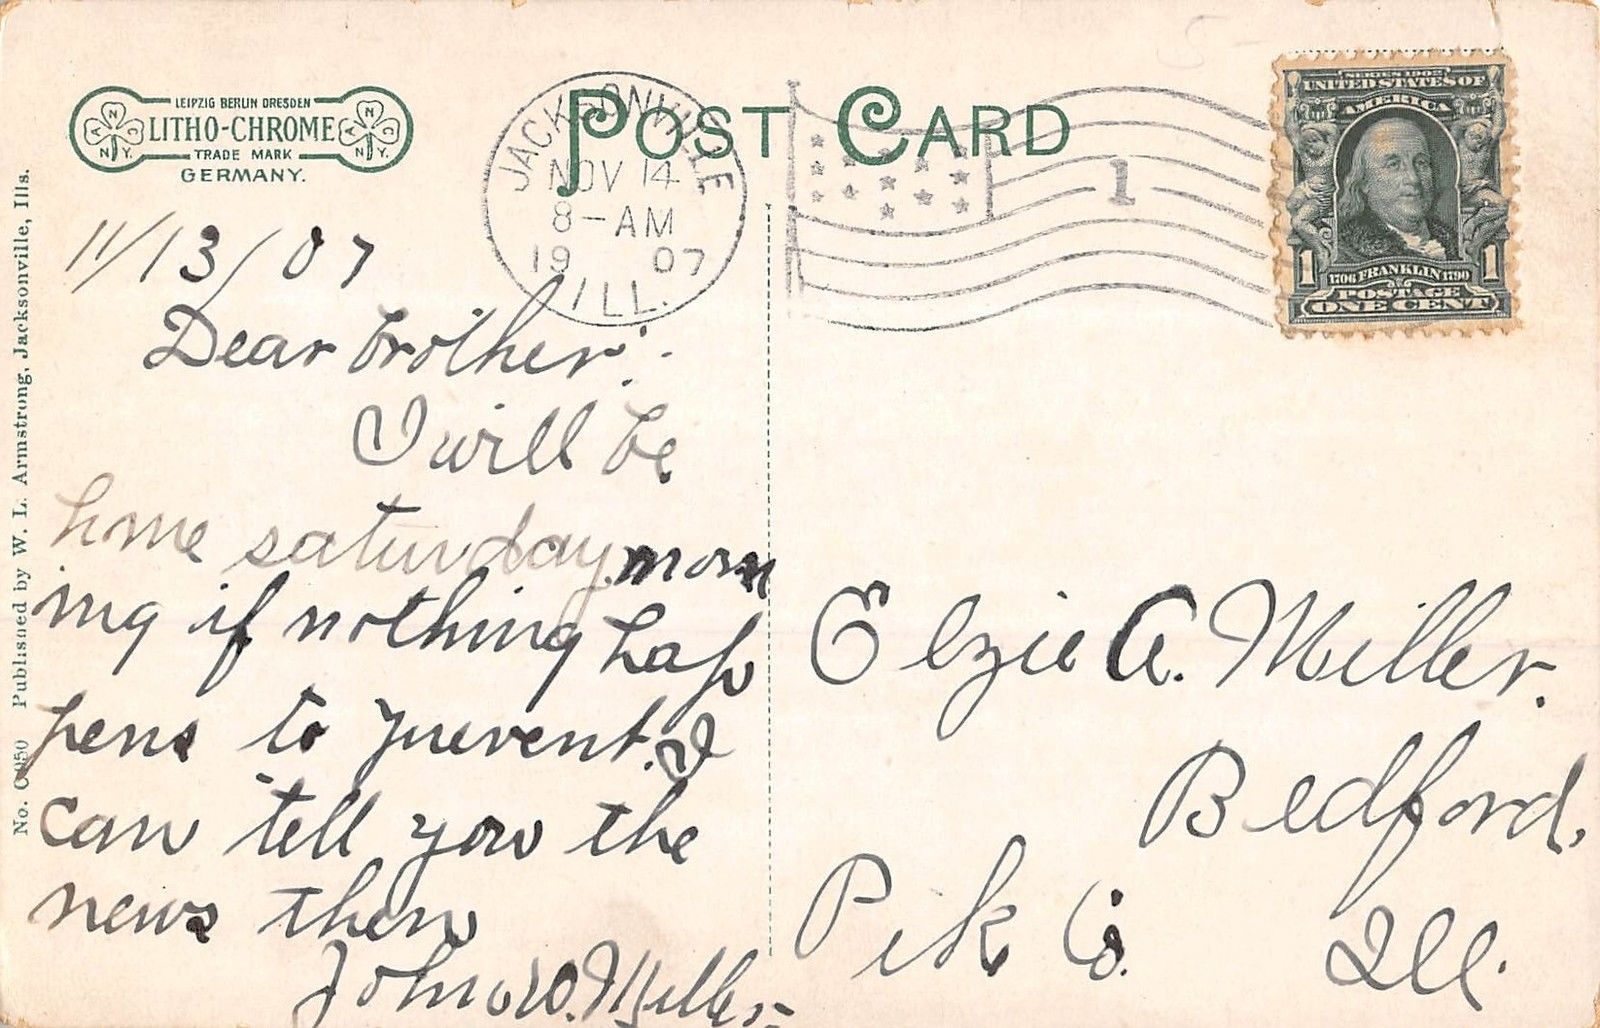 LEIPZIG BERLIN DRESDEN
LITHO-CHROME
TRADE MARK
GERMANY.
A N C N.Y.
A N C N.Y.
POST CARD
JACKSONVILLE
NOV 14
8-AM
1907
ILL.
1
SERIES 1902
UNITED STATES OF
AMERICA
1706 FRANKLIN 1790
1 1
POSTAGE
ONE CENT
No. C 950 Published by W. L. Armstrong, Jacksonville, Ills.
11/13/07
Dear brother:-
I will be
hme saturday morn
ing if nothing hap
pens to prevent. I
can tell you the
news then
John W. Miller
Elzie A. Miller.
Bedford,
Pik Co. Ill.